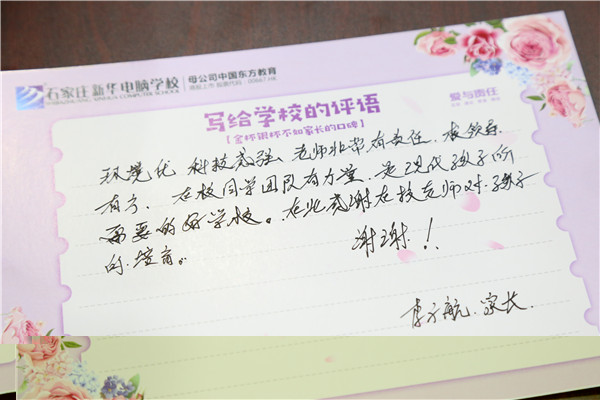 石家庄新华电脑学校
SHIJIAZHUANG XINHUA COMPUTER SCHOOL
母公司中国东方教育
港股上市 股票代码：00667.HK
写给学校的评语
【金杯银杯不如家长的口碑】
爱与责任
环境优 科技感强、老师非常有责任、校领导
有方、在校同学团队有力量、是现代孩子所
需要的好学校。在此感谢在校老师对孩子
的培育。
谢谢！！
李方航 家长